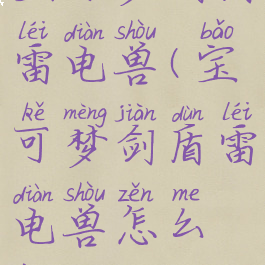 léi diàn shòu bǎo
雷电兽(宝
kě mèng jiàn dùn léi
可梦剑盾雷
diàn shòu zěn me
电兽怎么